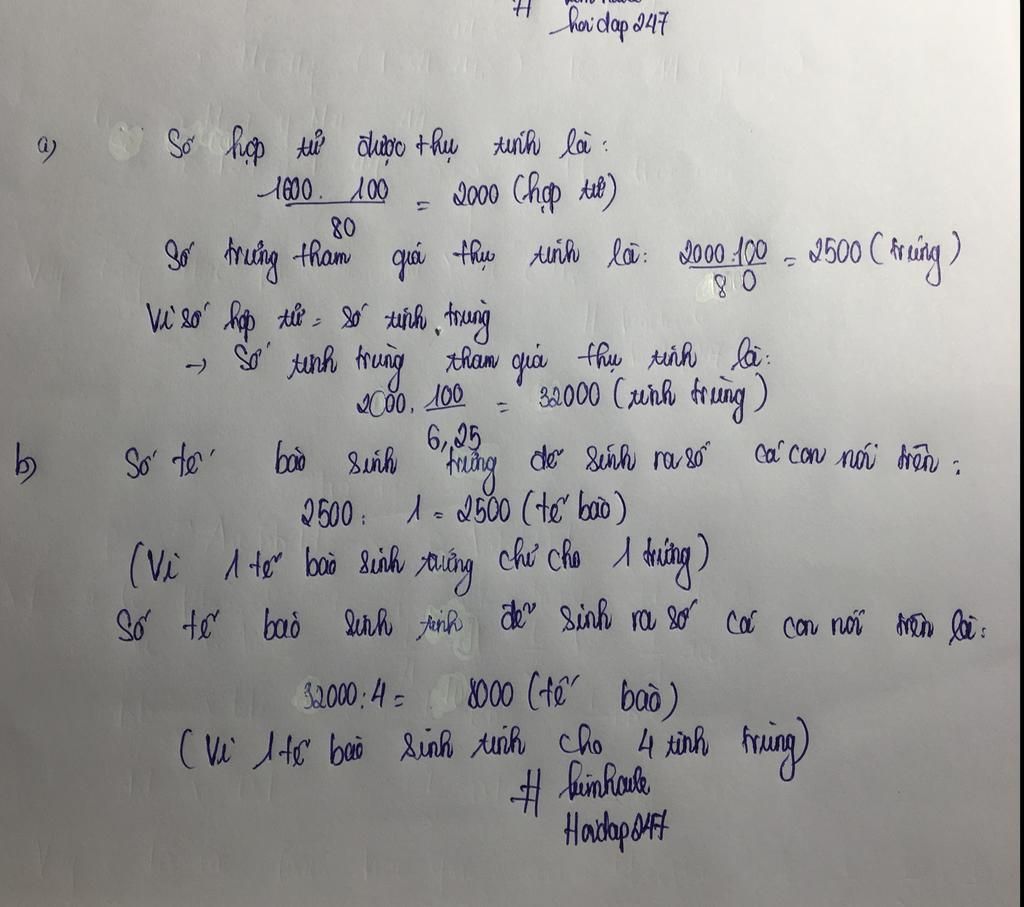 #
hoidap247
a) Số hợp tử được thụ tinh là:
1600. 100
80
= 2000 (hợp tử)
Số trứng tham giá thụ tinh là: 2000.100
80
= 2500 (trứng)
Vì số hợp tử = số tinh trùng
→ Số tinh trùng tham giá thụ tinh là:
2000. 100
6,25
= 32000 (tinh trùng)
b) Số tế bào sinh trứng để sinh ra số cá con nói trên:
2500: 1 = 2500 (tế bào)
(Vì 1 tế bào sinh trứng chỉ cho 1 trứng)
Số tế bào sinh tinh để sinh ra số cá con nói trên là:
32000:4 = 8000 (tế bào)
(Vì 1 tế bào sinh tinh cho 4 tinh trùng)
#
Hoidap247